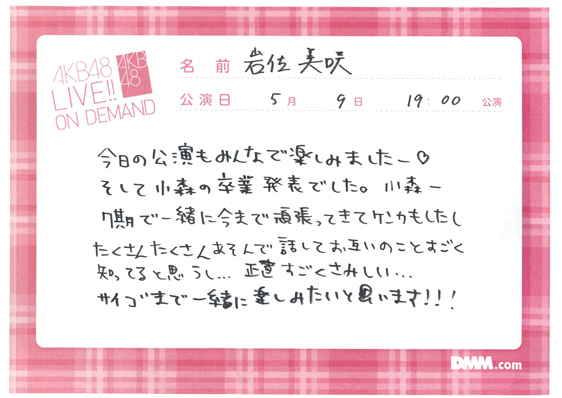 AKB48
LIVE!!
ON DEMAND
AKB
48
名前 岩佐美咲
公演日 5月 9日 19:00 公演
今日の公演もみんなで楽しみましたー♡
そして小森の卒業発表でした。小森ー
7期で一緒に今まで頑張ってきてケンカもしたし
たくさんたくさんあそんで話してお互いのことすごく
知ってると思うし…正直すごくさみしい…
サイゴまで一緒に楽しみたいと思います!!!
DMM.com